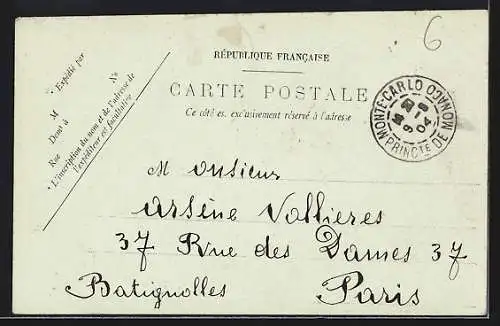 6
RÉPUBLIQUE FRANÇAISE
CARTE POSTALE
Ce côté est exclusivement réservé à l'adresse
* Expédié par
M
Demt à
Rue Nº
* L'inscription du nom et de l'adresse de
l'expéditeur est facultative
MONTE-CARLO
9 04
PRINCTÉ DE MONACO
Monsieur
Arsène Vallieres
37 Rue des Dames 37
Batignolles Paris